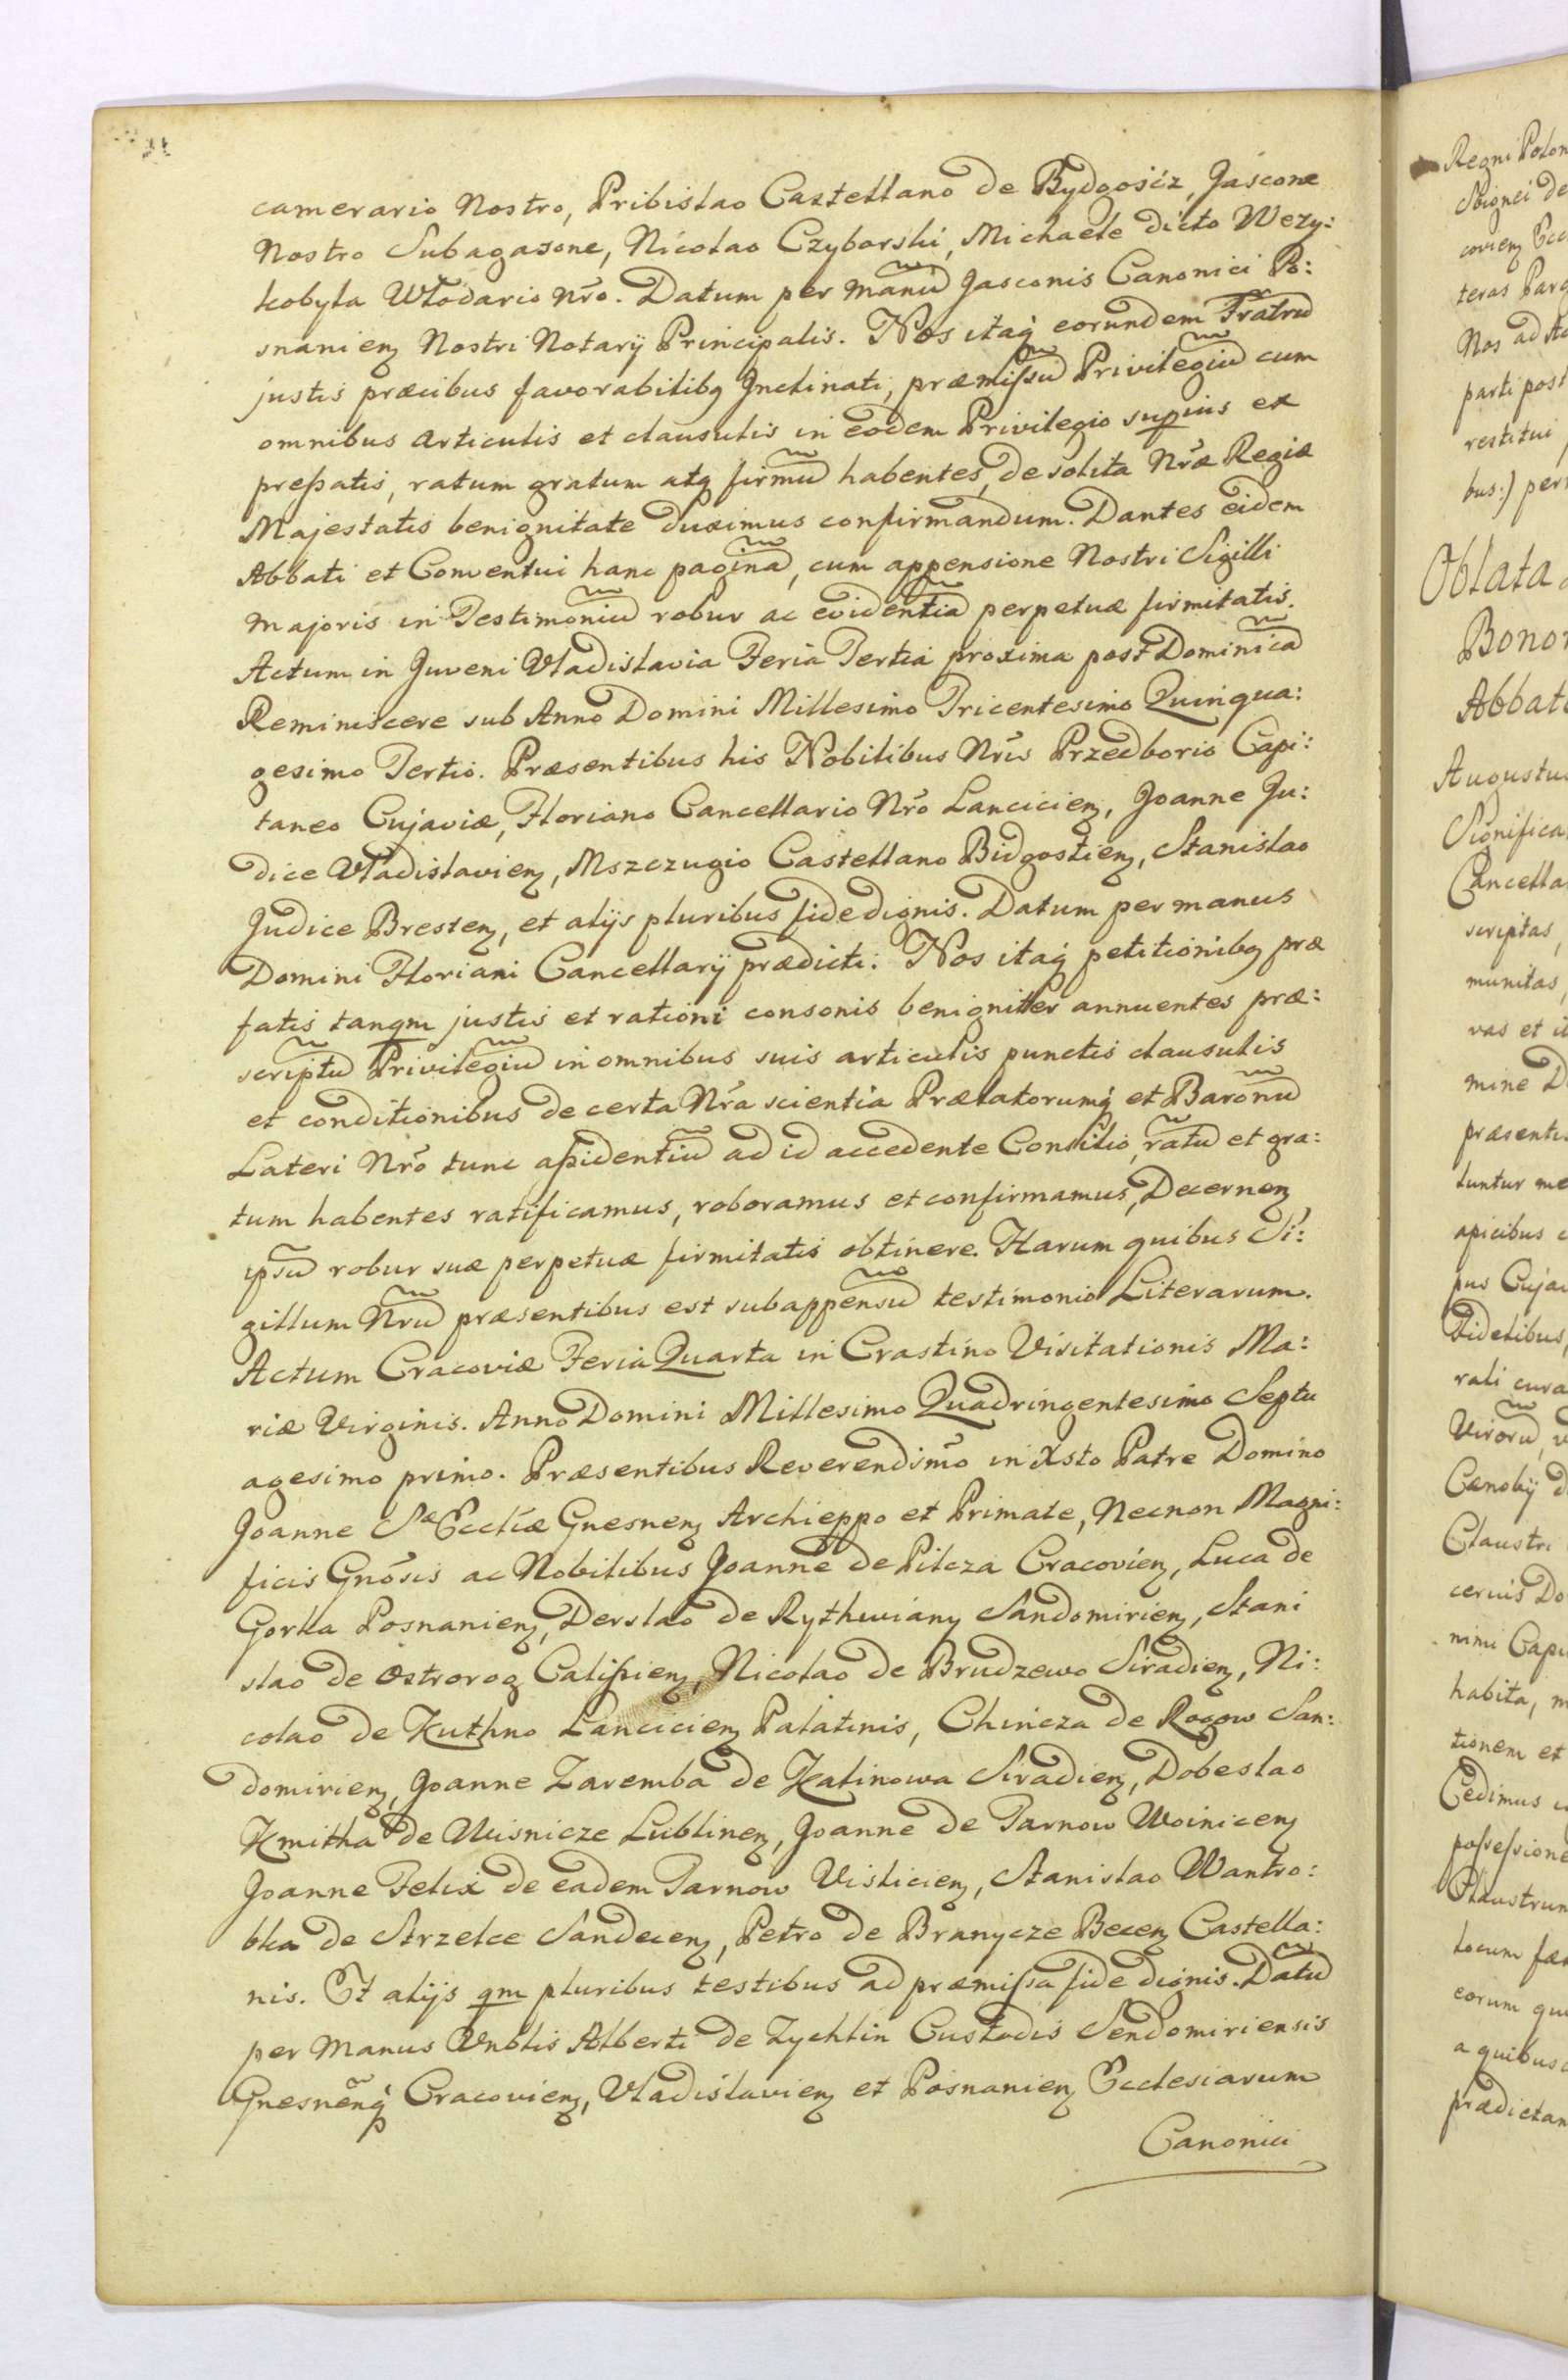 camerario Nostro, Pribislao Castellano de Bydgosćz, Jascone
Nostro Subagasone, Nicolao Czyborski, Michaele dicto Wezy:
kobyla Włodario nr̃o. Datum per manũ Jasconis Canonici Po:
snanien̨ Nostri Notarij Principalis. Nos itaq́ eorundem Fratrũ
justis præcibus favorabilibq Inclinati, præmiſsũ Privilegiũ cum
omnibus articulis et clausulis in eodem Privilegio supius ex
preſsatis, ratum gratum atq firmũ habentes, de solita Nr̃æ Regiæ
Majestatis benignitate duximus confirmandum. Dantes eidem
Abbati et Conventui hanc paginã, cum appensione Nostri Sigilli
majoris in Testimoniũ robur ac evidentiã perpetuæ firmitatis.
Actum in Juveni Vladislavia Feria Tertia proxima post Dominicã
Reminiscere sub Anno Domini Millesimo Tricentesimo Quinqua:
gesimo Tertio. Præsentibus his Nobilibus Nr̃is Przedborio Capi:
taneo Cujaviæ, Floriano Cancellario Nr̃o Lancicien̨, Joanne Ju:
dice Vladislavien̨, Mszczugio Castellano Bidgostien̨, Stanislao
Judice Bresten̨, et alijs pluribus fide dignis. Datum per manus
Domini Floriani Cancellarij prædicti. Nos itaq́ petitionibq præ
fatis tanqm justis et rationi consonis benigniter annuentes præ:
scriptũ Privilegiũ in omnibus suis articulis punctis clausulis
et conditionibus de certa Nr̃a scientia Prælatorumq́ et Baronũ
Lateri Nr̃o tunc aſsidentiũ ad id accedente Consilio, ratũ et gra:
tum habentes ratificamus, roboramus et confirmamus, Decernen̨
ipsũ robur suæ perpetuæ firmitatis obtinere. Harum quibus Si:
gillum Nr̃ũ præsentibus est subappensũ testimonio Literarum.
Actum Cracoviæ Feria Quarta in Crastino Visitationis Ma:
riæ Virginis. Anno Domini Millesimo Quadringentesimo Septu
agesimo primo. Præsentibus Reverendisim̃o in Xsto Patre Domino
Joanne Sæ Eccliæ Gnesnen̨ Archieppo et Primate, Necnon Magni:
ficis Gnõsis ac Nobilibus Joanne de Pilcza Cracovien̨, Luca de
Gorka Posnanien̨, Derslao de Rythwiany Sandomirien̨, Stani
slao de Ostrorog Caliſsien̨, Nicolao de Brudzewo Siradien̨, Ni:
colao de Kuthno Lancicien̨ Palatinis, Chińcza de Rogow San:
domirien̨, Joanne Zaremba de Kalinowa Siradien̨, Dobeslao
Kmitha de Wisnicze Lublinen̨, Joanne de Tarnow Woinicen̨
Joanne Felix de eadem Tarnow Vislicien̨, Stanislao Wantro:
bka de Strzelce Sandecen̨, Petro de Branycze Becen̨ Castella:
nis. Et alijs qm pluribus testibus ad præmiſsa fide dignis. Datũ
per manus Vnblis Alberti de Zychlin Custodis Sendomiriensis
Gnesneñq́ Cracovien̨, Vladislavien̨ et Posnanien̨ Ecclesiarum
Canonici
Regni Polon
covien̨ Ecc
teras
Nos ad
parti post
restitui
bus:) per
Oblata
Bonor
Abbat
Augustus
Significa
Cancella
scriptas,
munitas,
vas et
mine D
præsentis
tuntur me
apicibus
pus Cuja
Fidelibus,
rali cura
Virorũ,
Cænobij d
Claustri
Do
nimi Capi
habita, m
tionem et
Cedimus
poſseſsione
Claustrum
locum
eorum qu
a quibus
prædictam